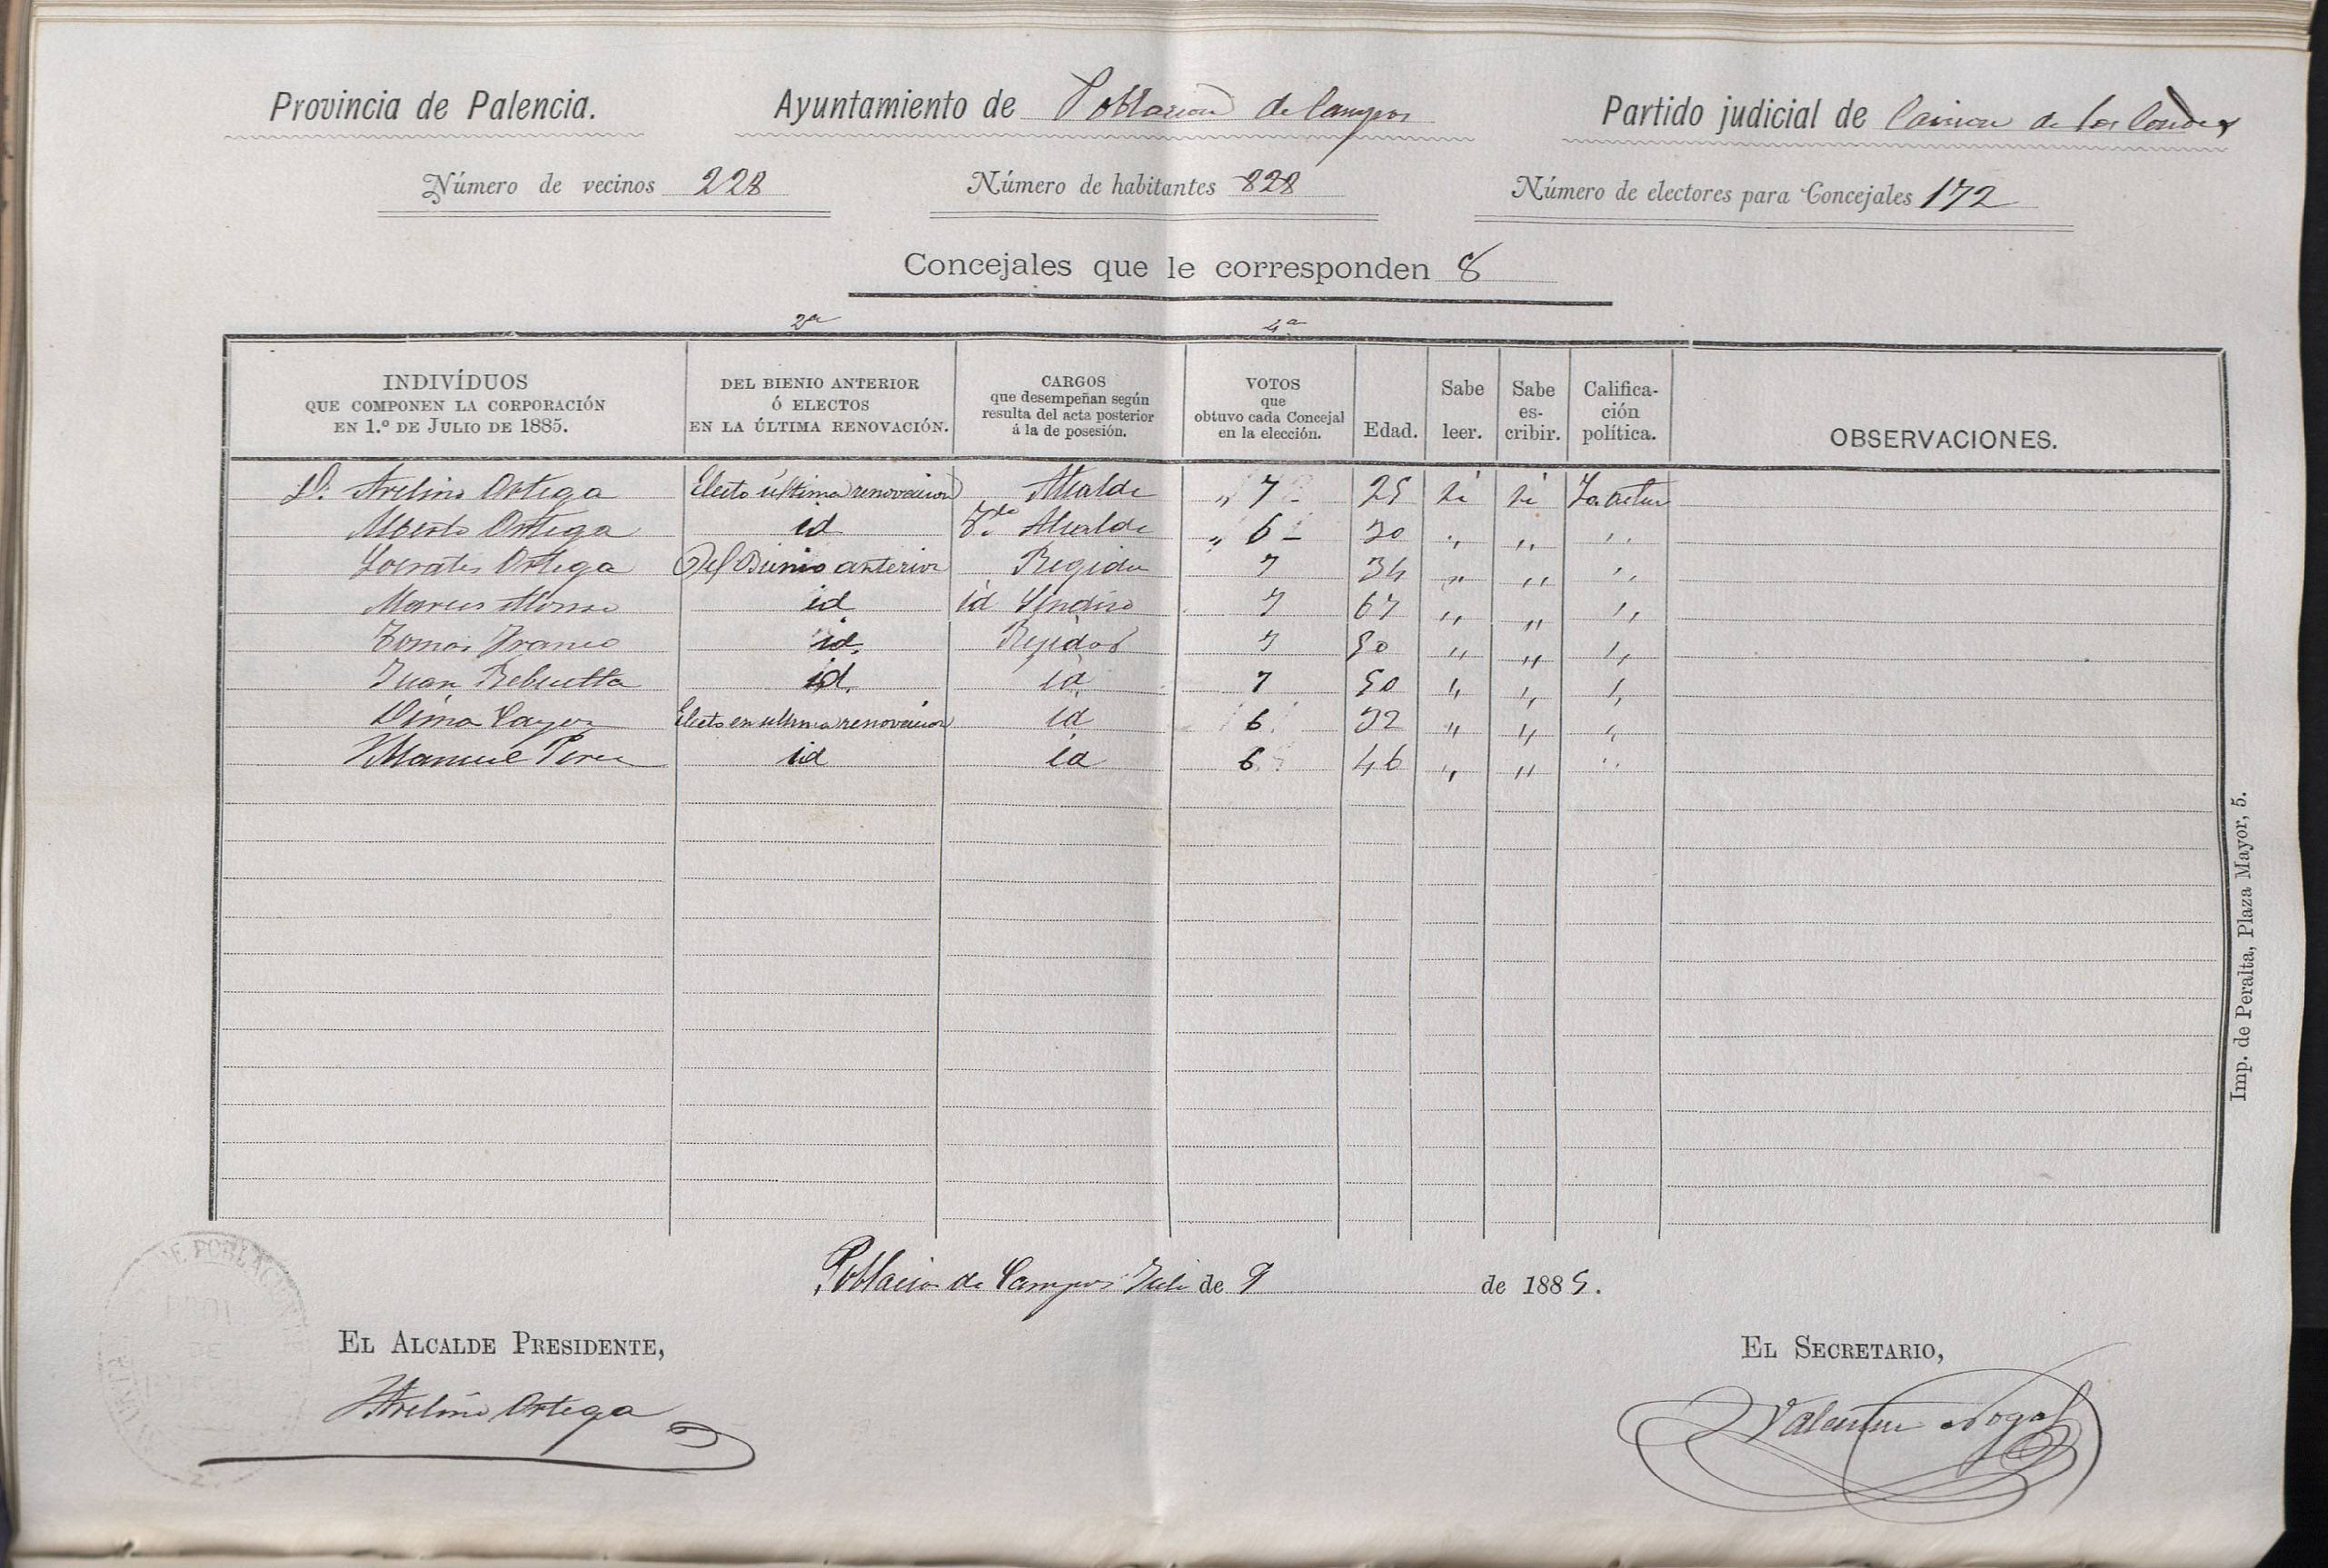 Provincia de Palencia. Ayuntamiento de Poblacion de Campos Partido judicial de Carrion de los Condes
Número de vecinos 228 Número de habitantes 828 Número de electores para Concejales 172
Concejales que le corresponden 8
2ª 4ª
INDIVÍDUOS QUE COMPONEN LA CORPORACIÓN EN 1.º DE JULIO DE 1885. DEL BIENIO ANTERIOR Ó ELECTOS EN LA ÚLTIMA RENOVACIÓN. CARGOS que desempeñan según resulta del acta posterior á la de posesión. VOTOS que obtuvo cada Concejal en la elección. Edad. Sabe leer. Sabe es-cribir. Califica-ción política. OBSERVACIONES.
D. Avelino Ortega Electo última renovacion Alcalde „ 7 25 si si
Alberto Ortega id Tte Alcalde „ 6 30 „ „ „
Socrates Ortega Del Bienio anterior Regidor 7 34 „ „ „
Marcos Alonso id id Sindico 7 67 „ „ „
Tomas Franco id. Regidor 7 50 „ „ „
Juan Rebuelta id. id 7 50 „ „ „
Electo en ultima renovacion id 6 32 „ „ „
Manuel Perez id id 6 46 „ „ „
Poblacion de Campos Julio de 9 de 1885.
EL ALCALDE PRESIDENTE, EL SECRETARIO,
Avelino Ortega Valentin Nogal
Imp. de Peralta, Plaza Mayor, 5.